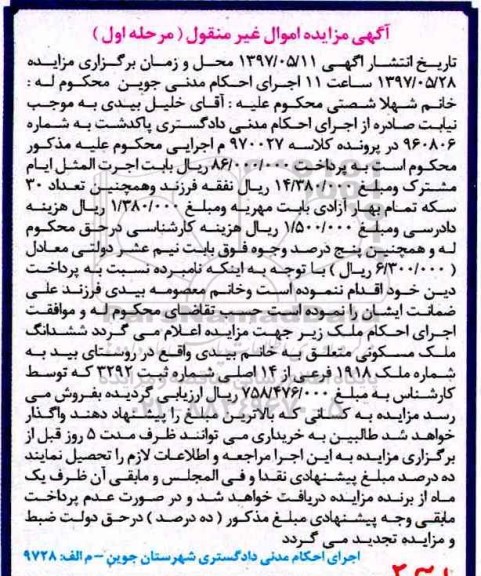 آگهی مزایده اموال غیر منقول ( مرحله اول )
تاریخ انتشار اگهی ۱۳۹۷/۰۵/۱۱ محل و زمان برگزاری مزایده
۱۳۹۷/۰۵/۲۸ ساعت ۱۱ اجرای احکام مدنی جوین محکوم له :
خانم شهلا شصتی محکوم علیه : آقای خلیل بیدی به موجب
نیابت صادره از اجرای احکام مدنی دادگستری پاکدشت به شماره
۹۶۰۸۰۶ در پرونده کلاسه ۹۷۰۰۲۷ م اجرایی محکوم علیه مذکور
محکوم است به پرداخت ۸۶/۰۰۰/۰۰۰ ریال بابت اجرت المثل ایام
مشترک ومبلغ ۱۴/۳۸۰/۰۰۰ ریال نفقه فرزند وهمچنین تعداد ۳۰
سکه تمام بهار آزادی بابت مهریه ومبلغ ۱/۳۸۰/۰۰۰ ریال هزینه
دادرسی ومبلغ ۱/۵۰۰/۰۰۰ ریال هزینه کارشناسی درحق محکوم
له و همچنین پنج درصد وجوه فوق بابت نیم عشر دولتی معادل
( ۶/۳۰۰/۰۰۰ ریال ) با توجه به اینکه نامبرده نسبت به پرداخت
دین خود اقدام ننموده است وخانم معصومه بیدی فرزند علی
ضمانت ایشان را نموده است حسب تقاضای محکوم له و موافقت
اجرای احکام ملک زیر جهت مزایده اعلام می گردد ششدانگ
ملک مسکونی متعلق به خانم بیدی واقع در روستای بید به
شماره ملک ۱۹۱۸ فرعی از ۱۴ اصلی شماره ثبت ۳۲۹۲ که توسط
کارشناس به مبلغ ۷۵۸/۴۷۶/۰۰۰ ریال ارزیابی گردیده بفروش می
رسد مزایده به کسانی که بالاترین مبلغ را پیشنهاد دهند واگذار
خواهد شد طالبین به خریداری می توانند ظرف مدت ۵ روز قبل از
برگزاری مزایده به این اجرا مراجعه و اطلاعات لازم را تحصیل نمایند
ده درصد مبلغ پیشنهادی نقدا و فی المجلس و مابقی آن ظرف یک
ماه از برنده مزایده دریافت خواهد شد و در صورت عدم پرداخت
مابقی وجه پیشنهادی مبلغ مذکور ( ده درصد ) درحق دولت ضبط
و مزایده تجدید می گردد
اجرای احکام مدنی دادگستری شهرستان جوین – م الف: ۹۷۲۸